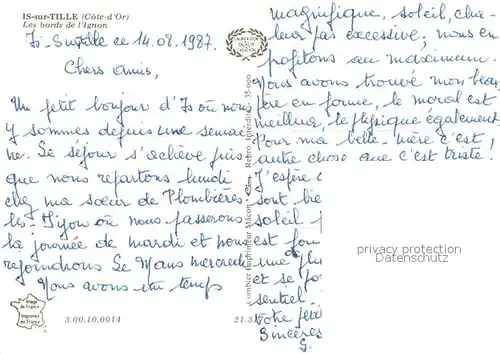 IS-sur-TILLE (Côte-d'Or)
Les bords de l'Ignon
Is-S/Tille ce 14.08.1987.
Chers amis,
Un petit bonjour d'Is où nous
y sommes depuis une semai
ne. Le séjour s'achève puis
que nous repartons lundi
chez ma sœur de Plombières
les Dijon où nous passerons
la journée de mardi et nous
rejoindrons Le Mans mercredi
Nous avons un temps
magnifique, soleil, cha-
leur pas excessive, nous en
profitons au maximum.
Nous avons trouvé mon beau
père en forme, le moral est
meilleur, le physique également
Pour ma belle-mère c'est
autre chose que c'est triste!
J'espère
sont bie
soleil
est
une
et se
sentiel
votre
Sincères
G.
Repro. Interdite
35-000
Combier Imprimeur Mâcon
Image de France
Imprimée en France
3.00.10.0014
21.3
privacy protection
Datenschutz